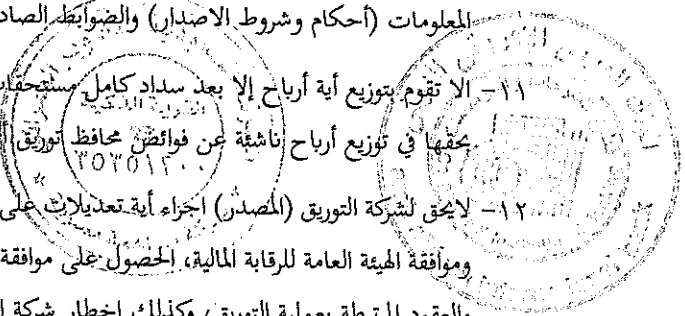 المعلومات (أحكام وشروط الاصدار) والضوابط الصاد
١١- الا تقوم بتوزيع أية أرباح إلا بعد سداد كامل مستحقات
بحقها في توزيع أرباح ناشئة عن فوائض محافظ توريق
١٢- لايحق لشركة التوريق (المصدر) اجراء أية تعديلات على
وموافقة الهيئة العامة للرقابة المالية، الحصول على موافقة
والعقود المرتبطة بعملية التوريق، وكذلك اخطار شركة ا